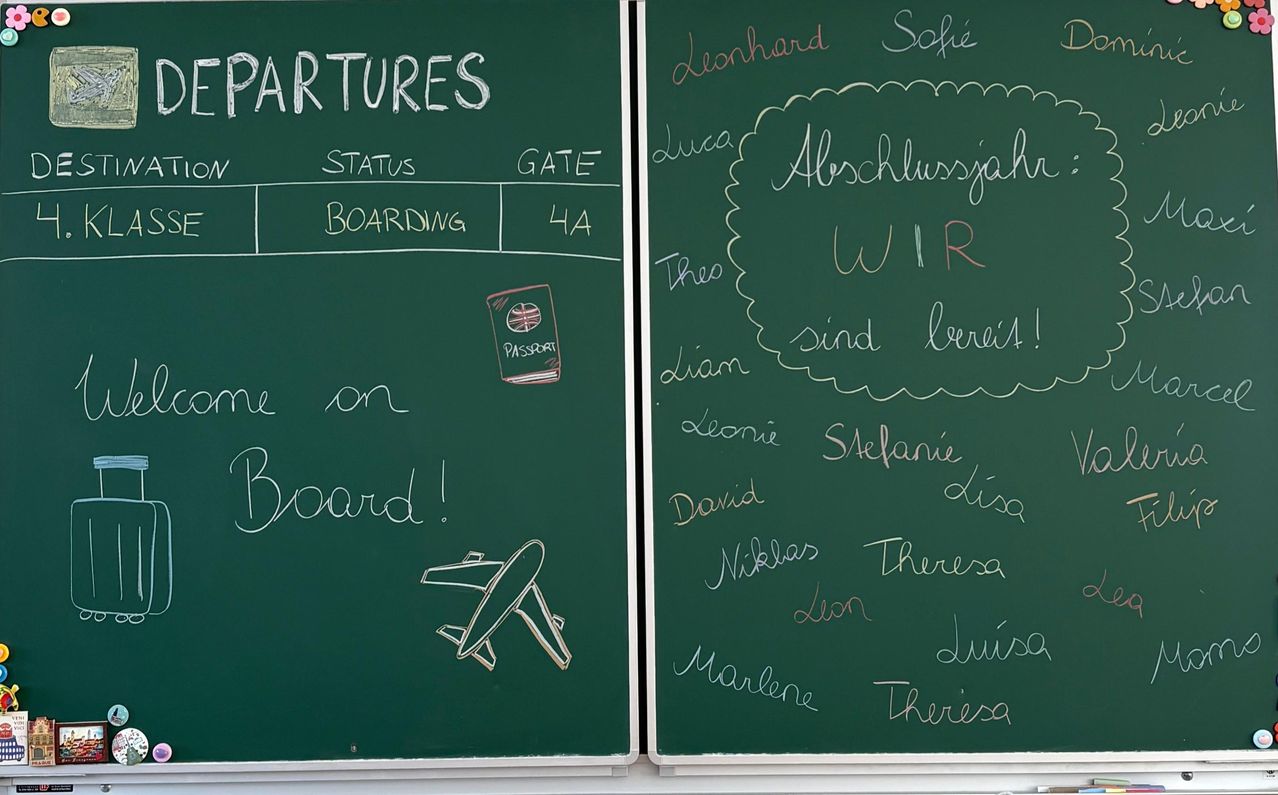 DEPARTURES
DESTINATION STATUS GATE
4. KLASSE BOARDING 4A
PASSPORT
Welcome on
Board!
VENI
VIDI
VICI
PRAGUE
Leonhard Sofie Dominic
Luca Leonie
Abschlussjahr:
WIR
sind bereit!
Maxi
Theo Stefan
Liam Marcel
Leonie Stefanie Valeria
David Lisa Filip
Niklas Theresa
Leon Lea
Luisa Momo
Marlene Theresa